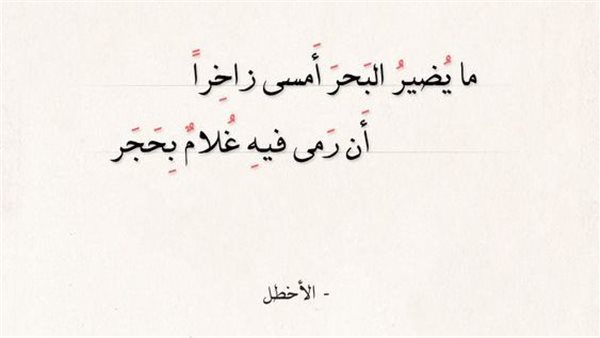 ما يُضيرُ البَحرَ أَمسى زاخِراً
أَن رَمى فيهِ غُلامٌ بِحَجَر
- الأخطل